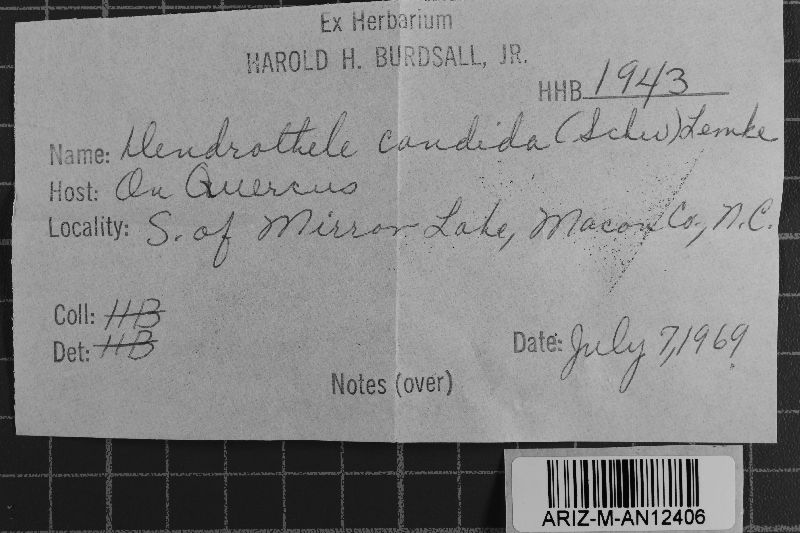 Ex Herbarium
HAROLD H. BURDSALL, JR.
HHB 1943
Name: Dendrothele candida (Schw) Lemke
Host: On Quercus
Locality: S. of Mirror Lake, Macon Co., N.C.
Coll: HB
Det: HB
Date: July 7, 1969
Notes (over)
ARIZ-M-AN12406